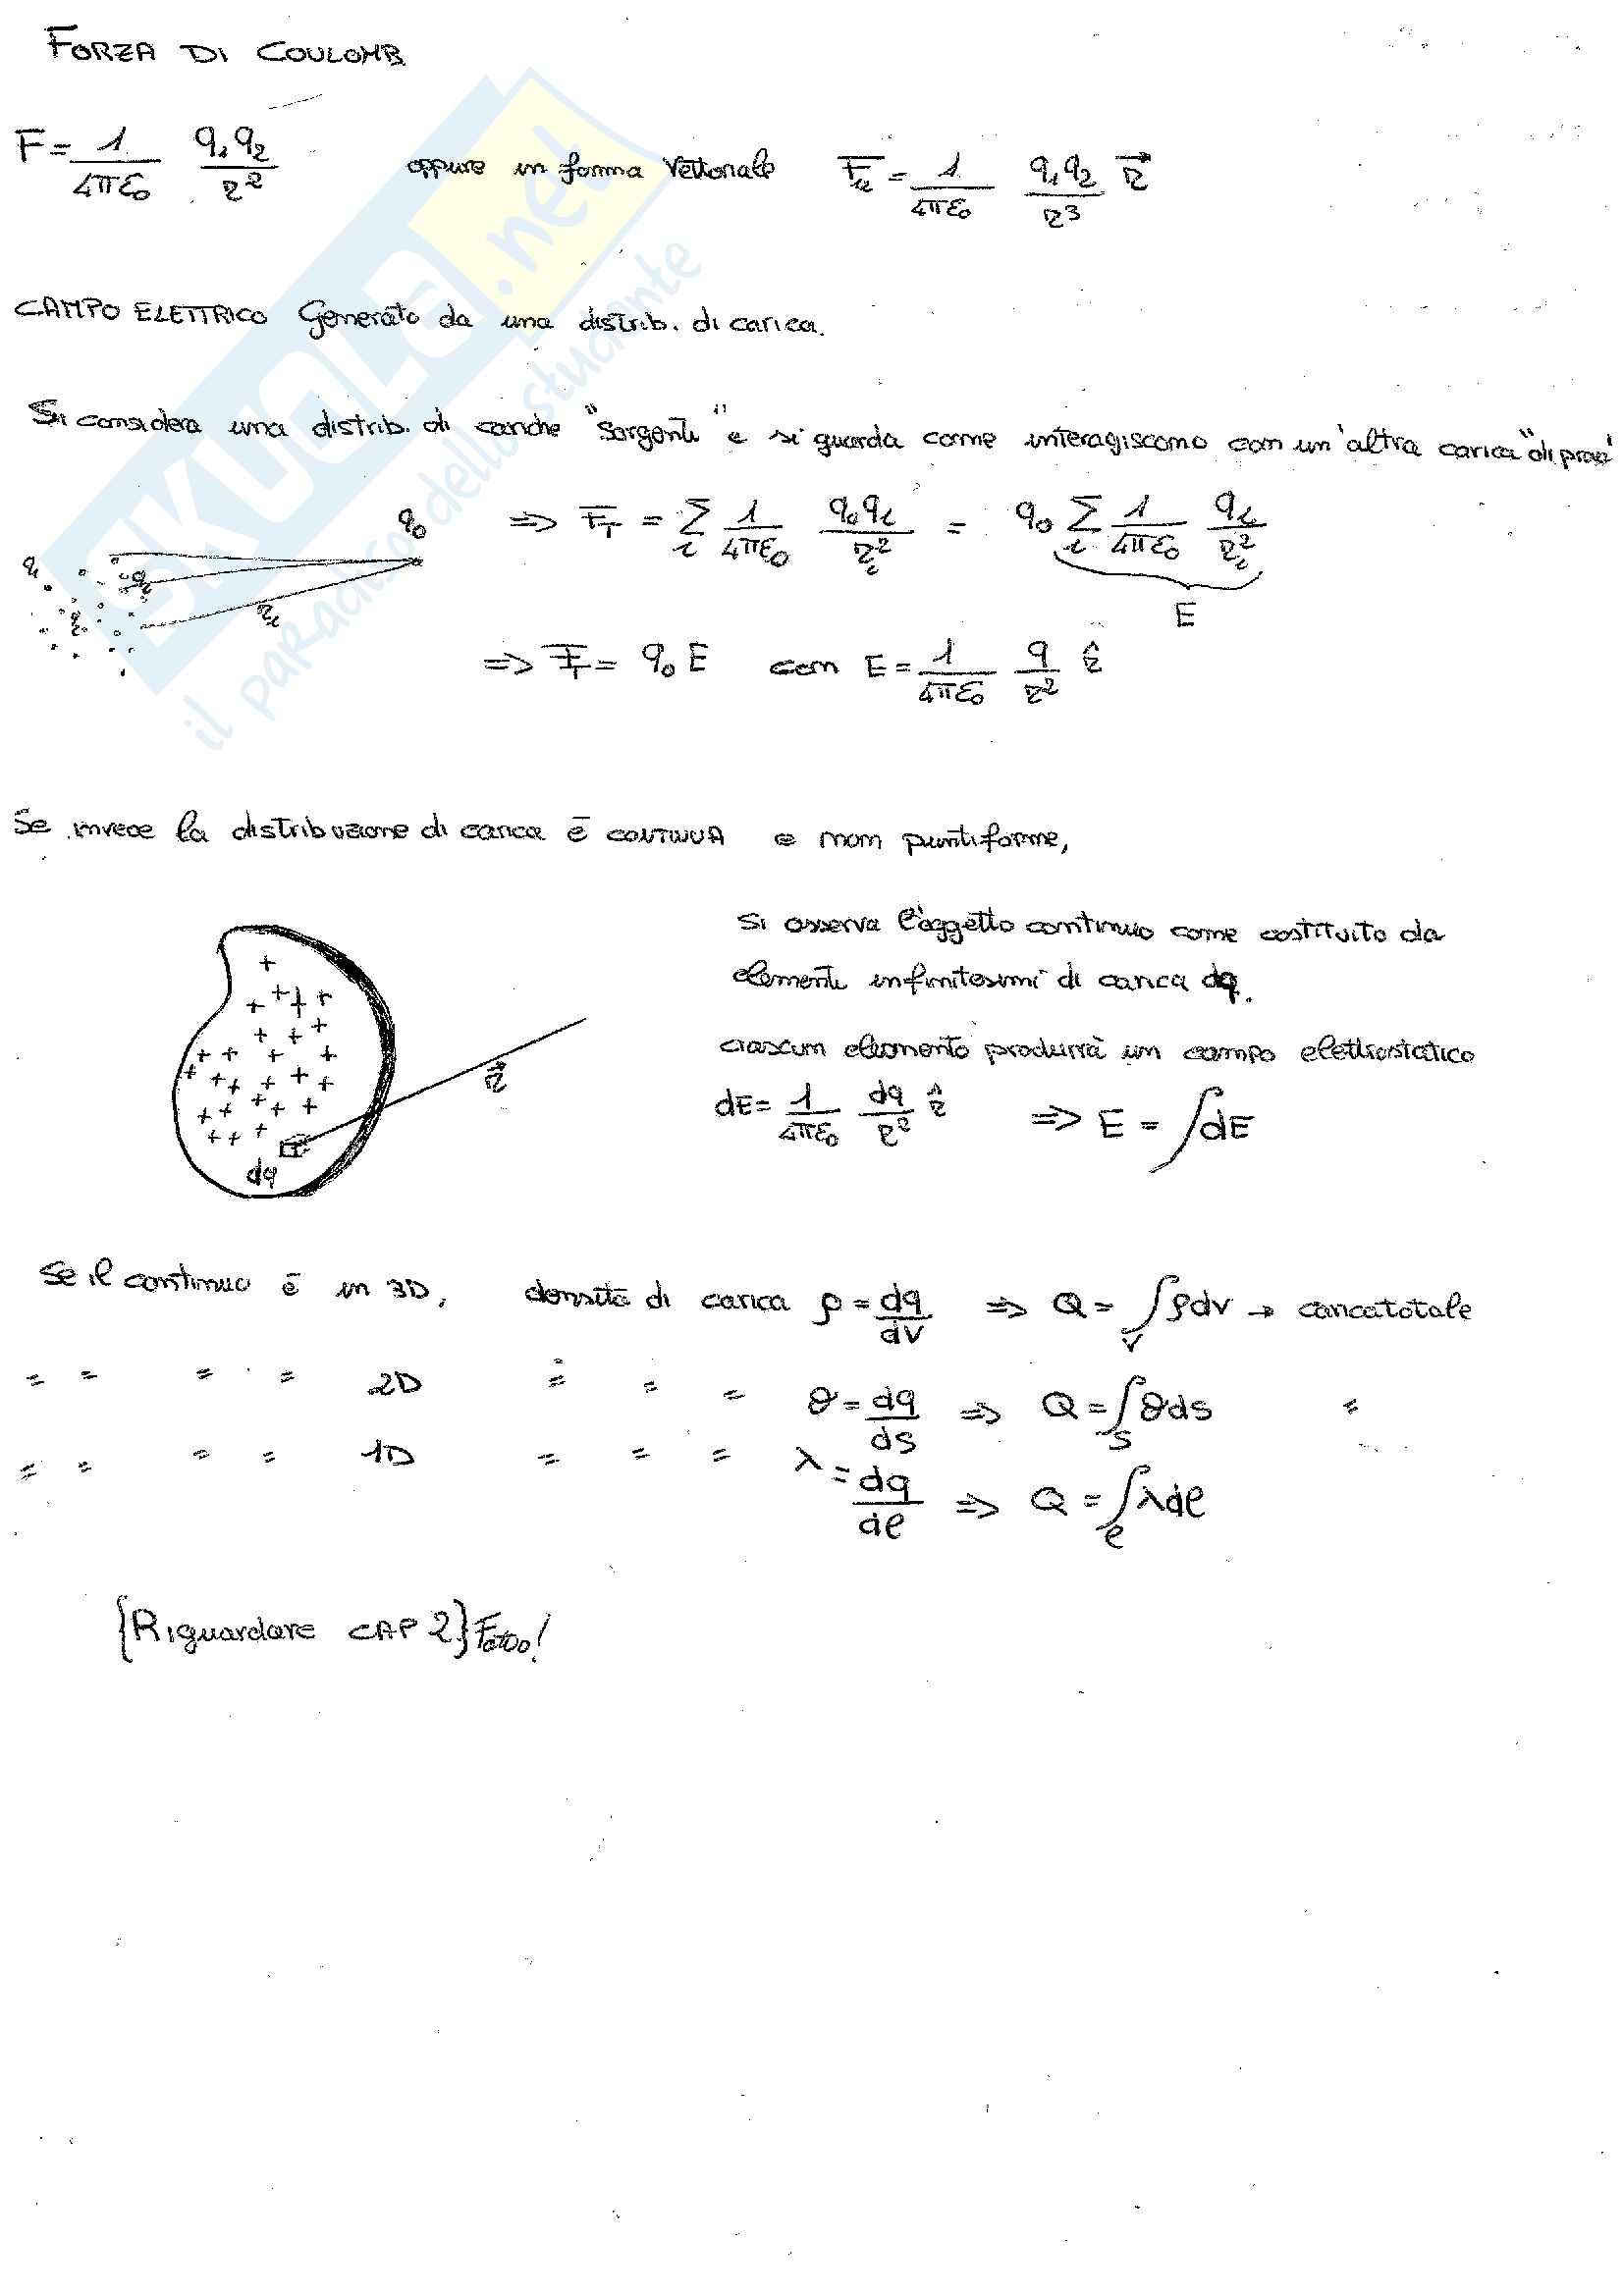 FORZA DI COULOMB
F = 1/4πε₀ q₁q₂/r² oppure in forma vettoriale F̅₁₂ = 1/4πε₀ q₁q₂/r³ r⃗
CAMPO ELETTRICO Generato da una distrib. di carica.
Si considera una distrib. di cariche "Sorgenti" e si guarda come interagiscono con un'altra carica "di prova"
q₀ => F̅_T = Σ_i 1/4πε₀ q₀q_i/r_i² = q₀ Σ_i 1/4πε₀ q_i/r_i²
q_i
r_i
E
=> F̅_T = q₀ E con E = 1/4πε₀ q/r² r̂
Se invece la distribuzione di carica è CONTINUA e non puntiforme,
si osserva l'oggetto continuo come costituito da
elementi infinitesimi di carica dq.
ciascun elemento produrrà un campo elettrostatico
r⃗
dE = 1/4πε₀ dq/r² r̂ => E = ∫dE
dq
Se il continuo è in 3D, densità di carica ρ = dq/dV => Q = ∫_V ρdv → carica totale
= = = = 2D = = = σ = dq/ds => Q = ∫_S σds =
= = = = 1D = = = λ = dq/dℓ => Q = ∫_ℓ λdℓ
{Riguardare CAP 2} Fatto!
SKUOLA.net
il paradiso dello studente